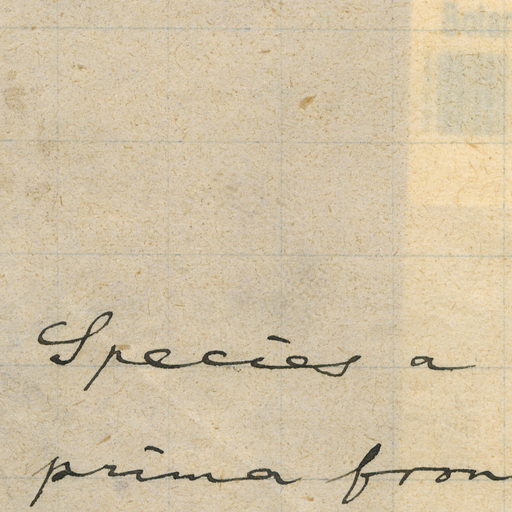 Species a
prima fron